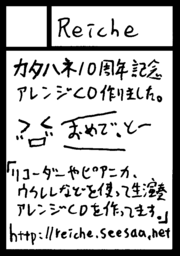 Reiche
カタハネ10周年記念
アレンジCD作りました。
おめでとー
「リコーダーやピアニカ、
ウクレレなどを使って生演奏
アレンジCDを作ってます。」
http://reiche.seesaa.net